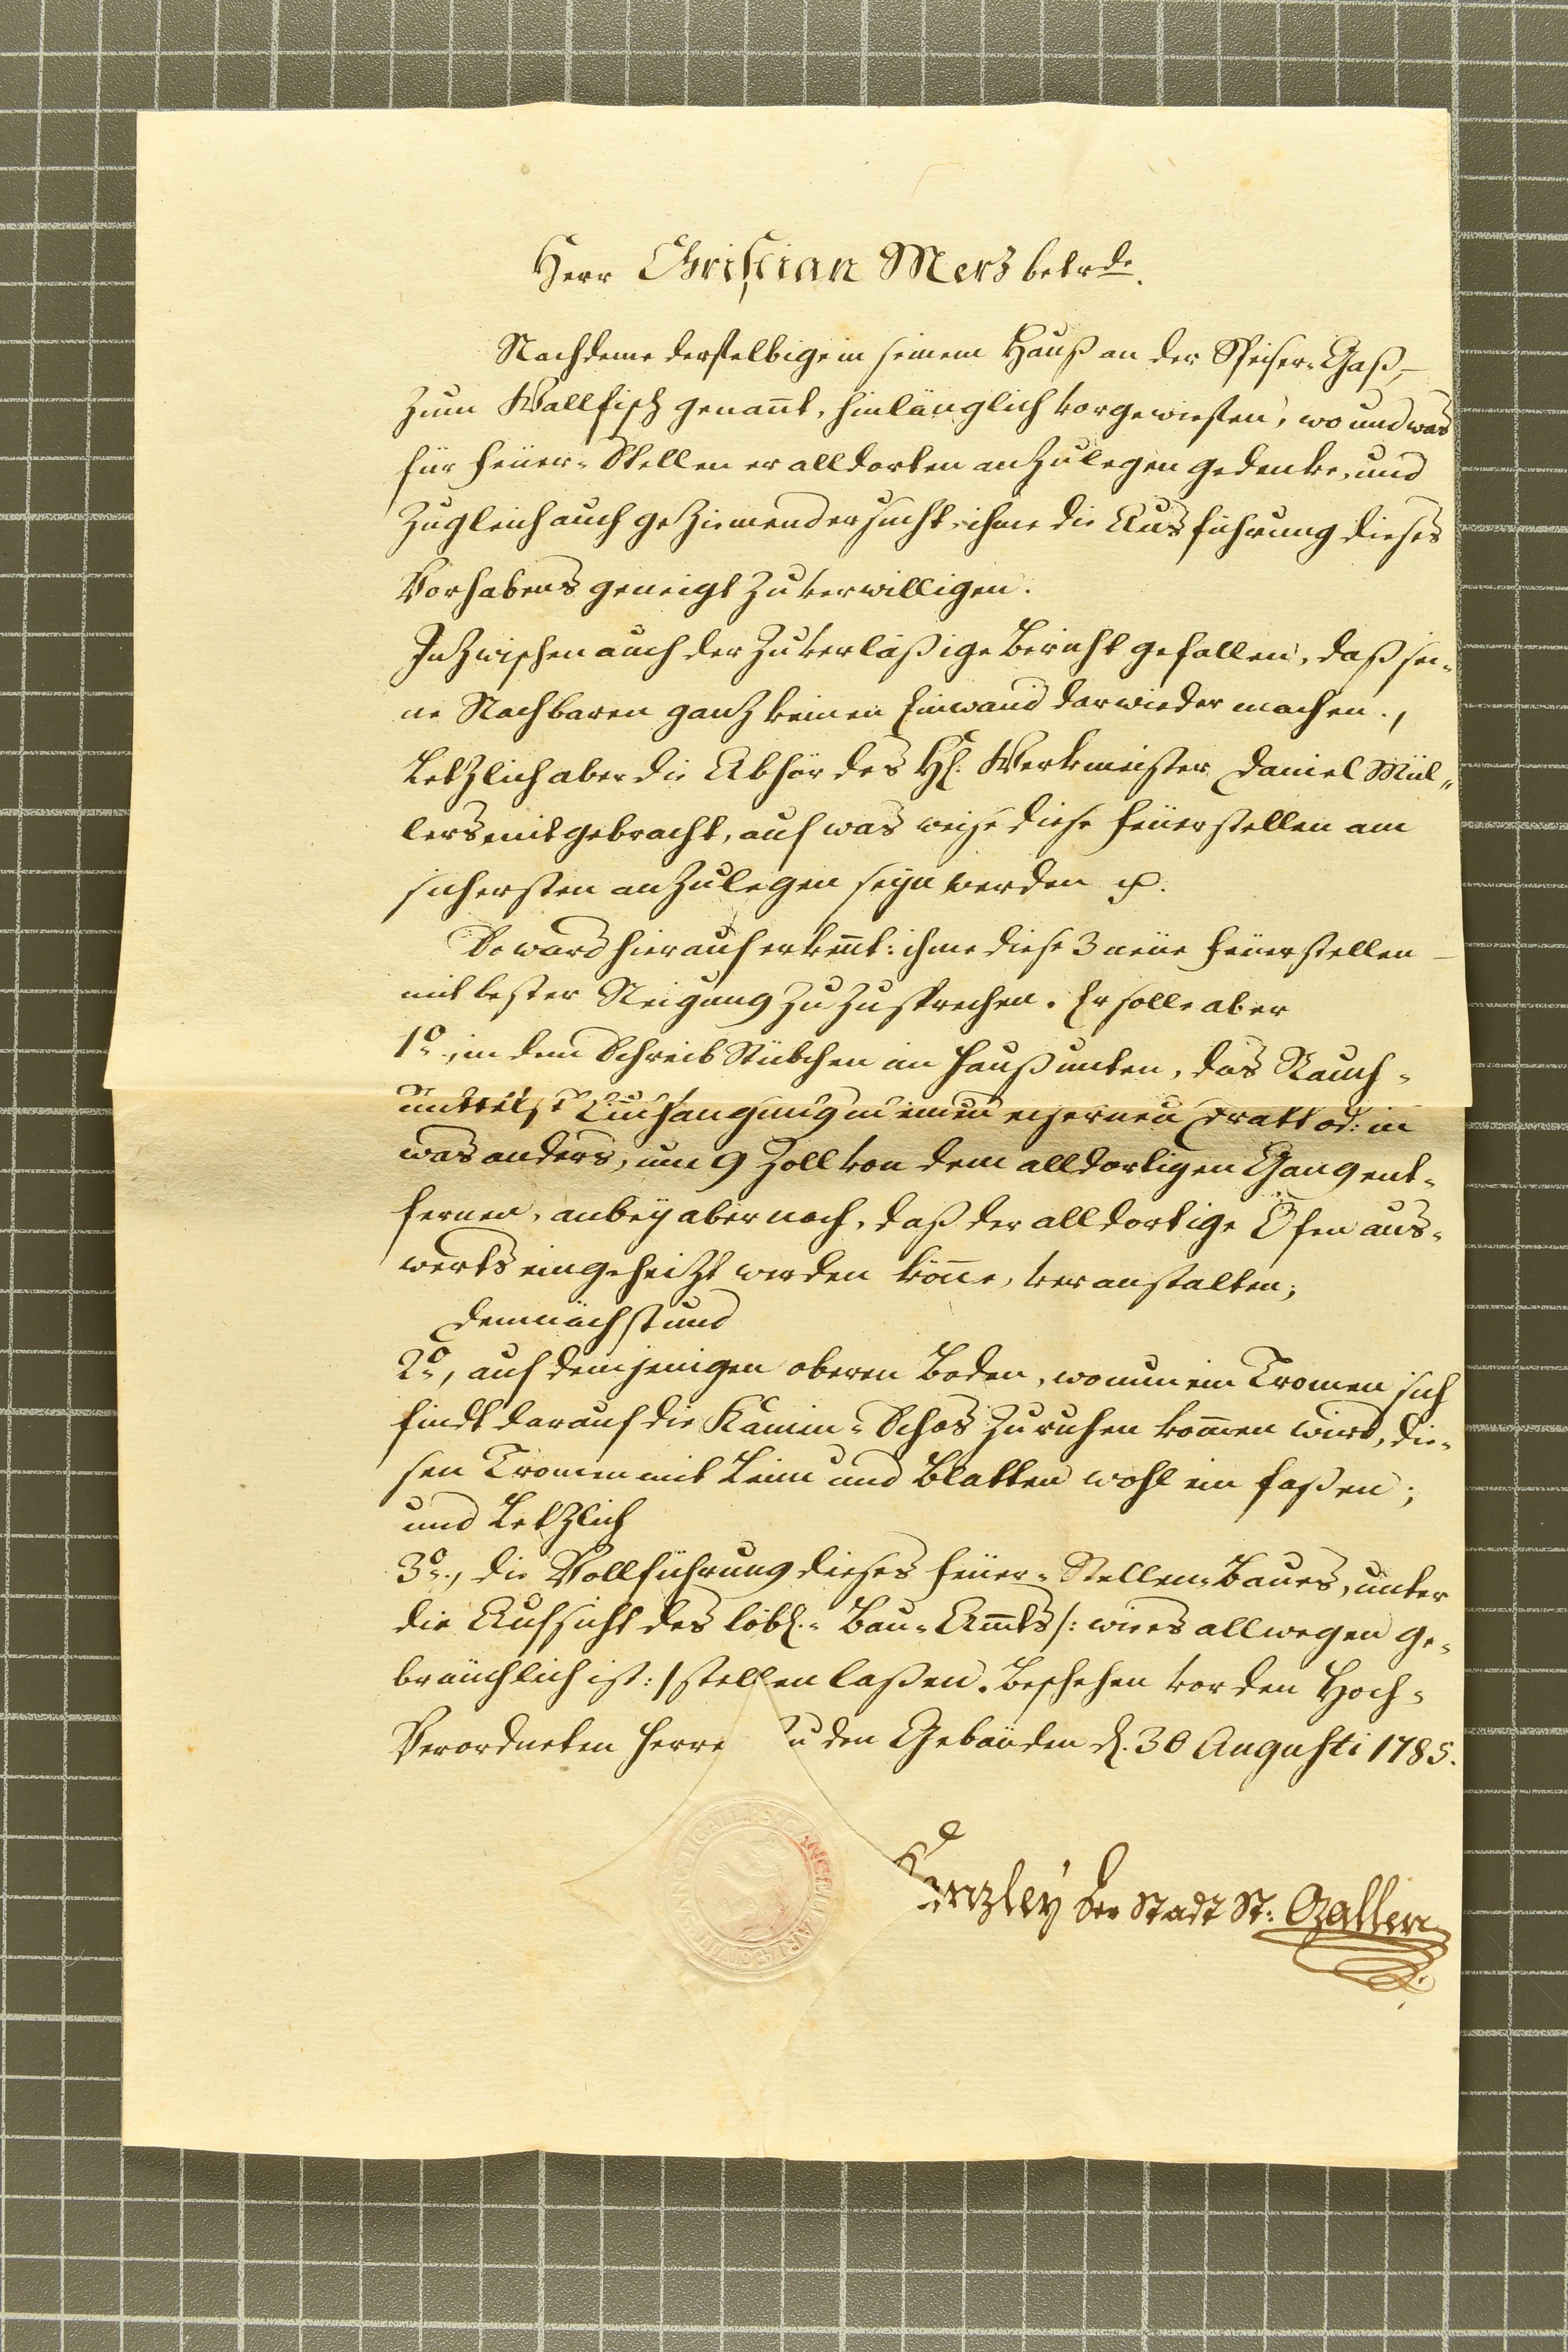 Herr Christian Merz betrde.
Nachdeme derselbige in seinem Hauß an der Speiser-Gaß,
zum Wallfisch genannt, hinlänglich vorgewiesen, wo und was
für Feüer-Stellen er alldorten anzulegen gedenke, und
zugleich auch geziemend ersucht, ihme die Ausführung dieses
Vorhabens geneigt zu verwilligen.
Inzwischen auch der zuverläßige Bericht gefallen, daß sei-
ne Nachbaren ganz keinen Einwand darwieder machen.,
Letzlich aber die Abhör des Hh. Werkmeister Daniel Mül-
lers mitgebracht, auf was weise diese Feüerstellen am
sichersten anzulegen seyn werden p.
So ward hierauf erkennt: ihme diese 3 neüe Feüerstellen
mit bester Neigung zuzusprechen. Er solle aber
1o., in dem Schreib Stübchen im Hauß unten, das Rauch-
mittelst Einhängung in einen eisernen Dratt od: in
was anders, um 9 Zoll von dem alldortigen Gang ent-
fernen, anbey aber noch, daß der alldortige Ofen aus-
werts eingeheitzt werden könne, veranstalten;
Demnächst und
2o., auf demjenigen oberen Boden, wo nun ein Tromen sich
findt darauf die Kamin-Schos zu ruhen kommen wird, die-
sen Tromen mit Leim und Blatten wohl einfaßen;
und Letzlich
3o., die Vollführung dieses Feüer-Stellen-Baues, unter
die Aufsicht des löbl. Bau-Ammts /: wie es allwegen ge-
bräüchlich ist :/ stellen laßen. Beschehen vor den Hoch-
Verordneten Herre zu den Gebäüden d. 30 Augusti 1785.
Kanzley der Stadt St: Gallen